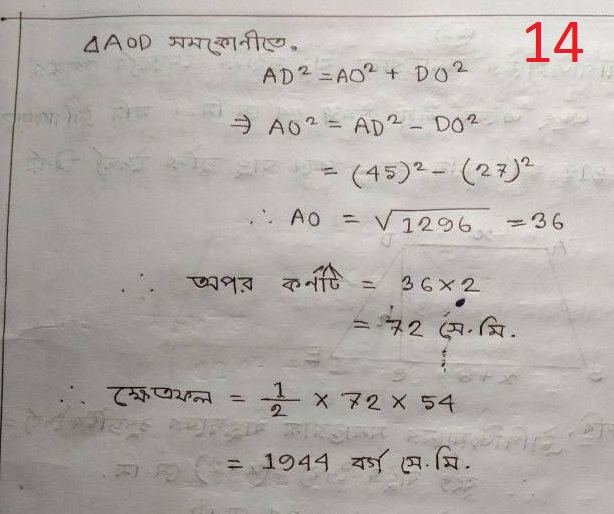 14
ΔAOD সমকোনীতে.
AD² = AO² + DO²
⇒ AO² = AD² – DO²
= (45)² – (27)²
∴ AO = √1296 = 36
∴ অপর কর্ণটি = 36 × 2
= 72 সে.মি.
∴ ক্ষেত্রফল = 1/2 × 72 × 54
= 1944 বর্গ সে.মি.